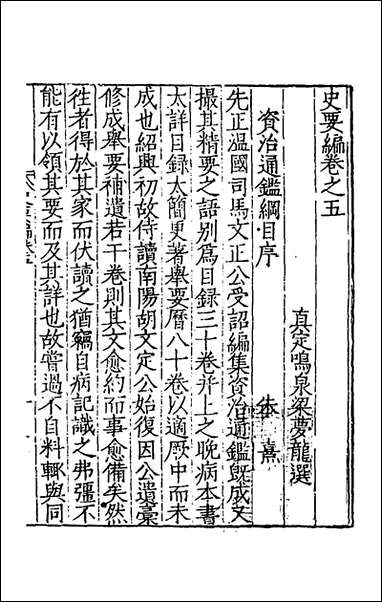 史要編卷之五
真定鳴泉梁夢龍選
資治通鑑綱目序
朱熹
先正溫國司馬文正公受詔編集資治通鑑既成又
撮其精要之語別為目錄三十卷并上之晚病本書
太詳目錄太簡更著舉要曆八十卷以適厥中而未
成也紹興初故侍讀南陽胡文定公始復因公遺稾
修成舉要補遺若干卷則其文愈約而事愈備矣然
徃者得於其家而伏讀之猶竊自病記識之弗彊不
能有以領其要而及其詳也故嘗過不自料輒與同